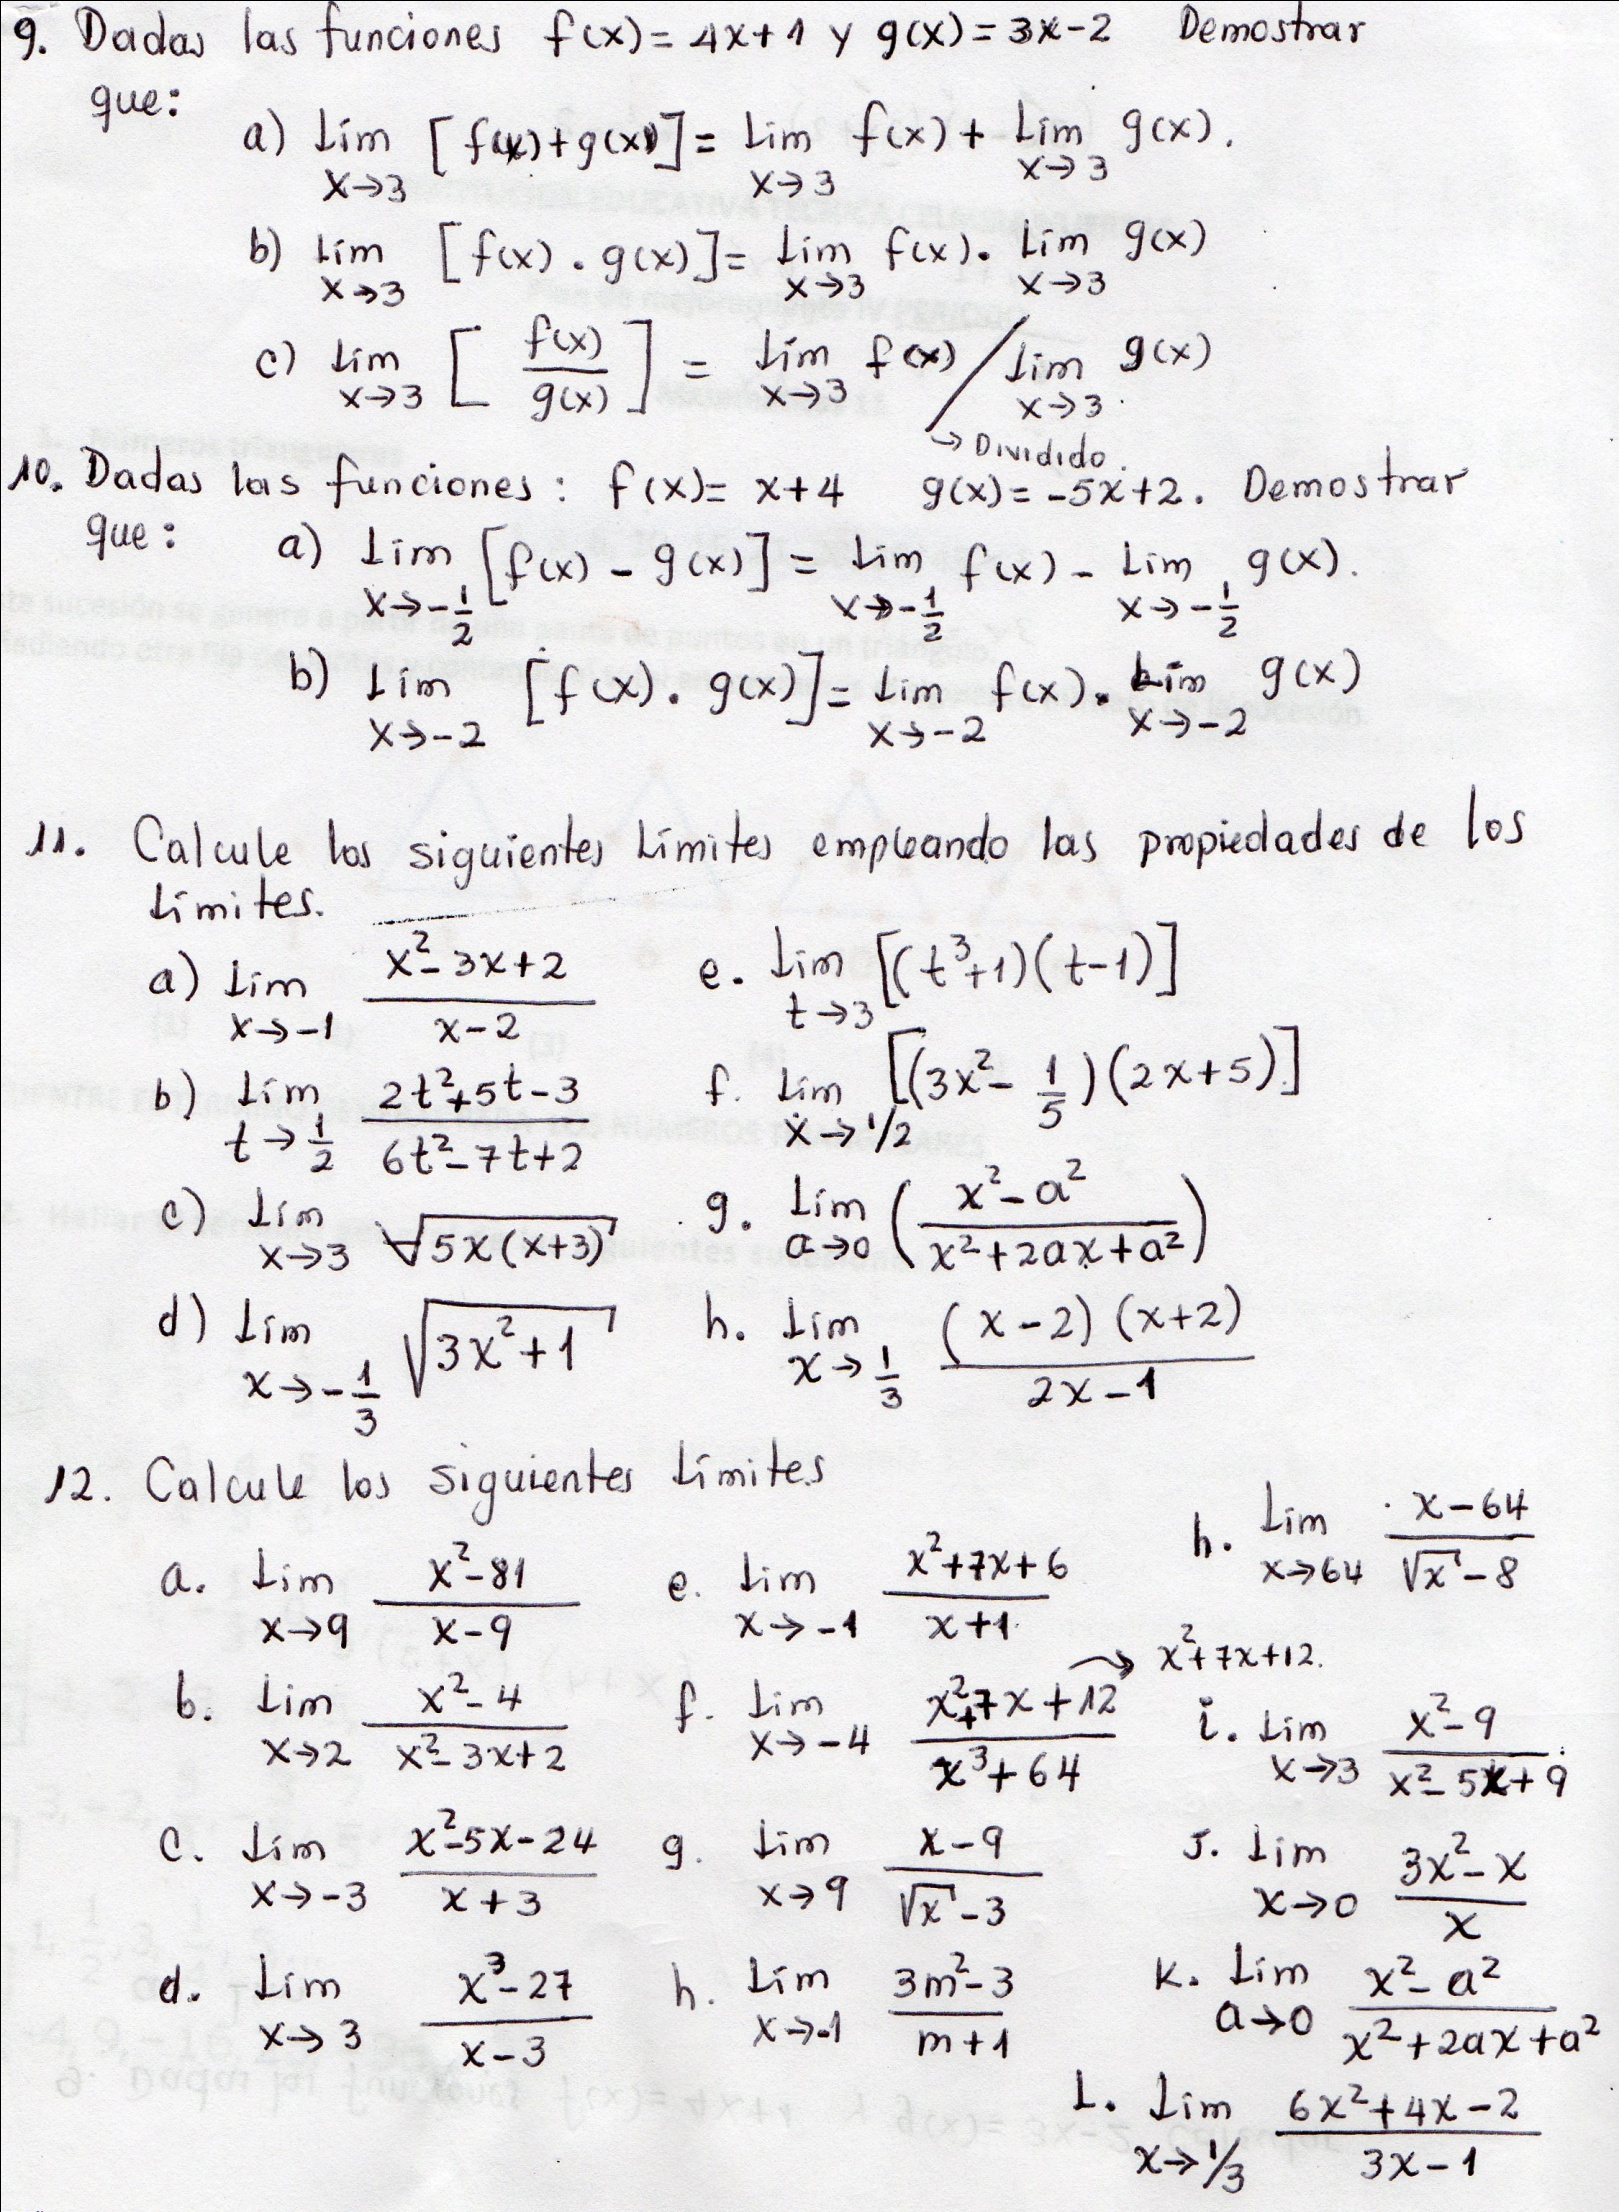 9. Dadas las funciones f(x) = 4x+1 y g(x) = 3x-2 Demostrar
que:
a) Lim x→3 [f(x)+g(x)] = Lim x→3 f(x) + Lim x→3 g(x).
b) Lim x→3 [f(x) . g(x)] = Lim x→3 f(x) . Lim x→3 g(x)
c) Lim x→3 [f(x)/g(x)] = Lim x→3 f(x) / Lim x→3 g(x)
→ Dividido.
10. Dadas las funciones: f(x) = x+4 g(x) = -5x+2. Demostrar
que: a) Lim x→-1/2 [f(x) - g(x)] = Lim x→-1/2 f(x) - Lim x→-1/2 g(x).
b) Lim x→-2 [f(x) . g(x)] = Lim x→-2 f(x) . Lim x→-2 g(x)
11. Calcule los siguientes Límites empleando las propiedades de los
Límites.
a) Lim x→-1 (x²-3x+2)/(x-2)
b) Lim t→1/2 (2t²+5t-3)/(6t²-7t+2)
c) Lim x→3 √(5x(x+3))
d) Lim x→-1/3 √(3x²+1)
e. Lim t→3 [(t³+1)(t-1)]
f. Lim x→1/2 [(3x²-1/5)(2x+5)]
g. Lim a→0 ((x²-a²)/(x²+2ax+a²))
h. Lim x→1/3 (x-2)(x+2)/(2x-1)
12. Calcule los siguientes Límites
a. Lim x→9 (x²-81)/(x-9)
b. Lim x→2 (x²-4)/(x²-3x+2)
c. Lim x→-3 (x²-5x-24)/(x+3)
d. Lim x→3 (x³-27)/(x-3)
e. Lim x→-1 (x²+7x+6)/(x+1)
f. Lim x→-4 (x²+7x+12)/(x³+64) → x²+7x+12.
g. Lim x→9 (x-9)/(√x-3)
h. Lim x→-1 (3m²-3)/(m+1)
h. Lim x→64 (x-64)/(√x-8)
i. Lim x→3 (x²-9)/(x²-5x+9)
J. Lim x→0 (3x²-x)/x
K. Lim a→0 (x²-a²)/(x²+2ax+a²)
L. Lim x→1/3 (6x²+4x-2)/(3x-1)